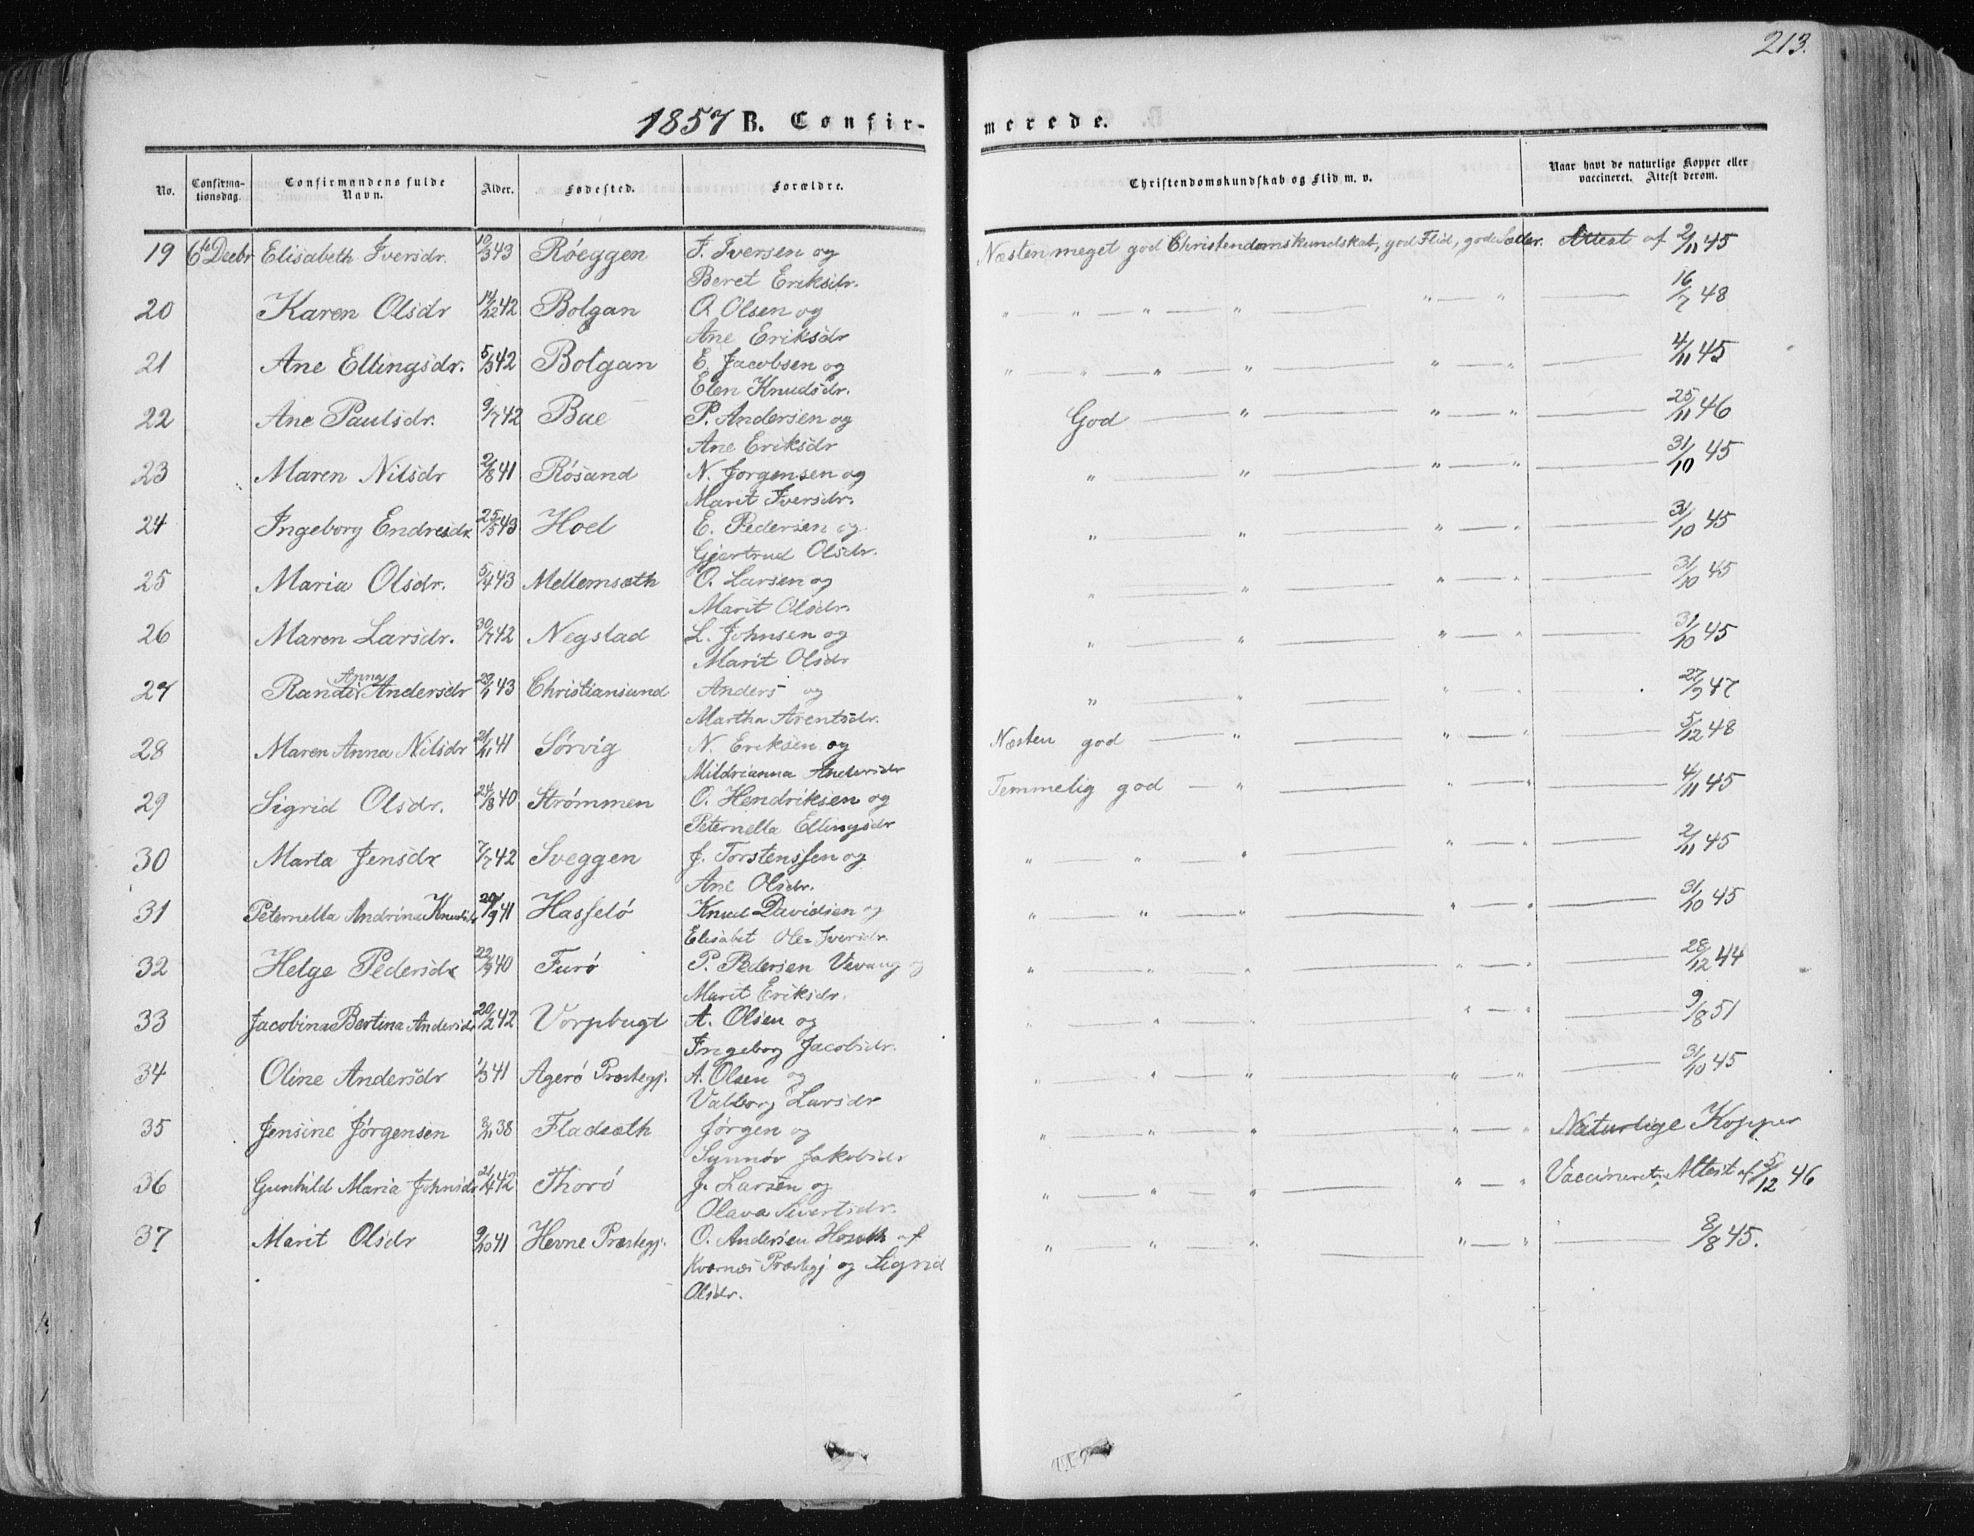 213.
1857 B. Confirmerede.
No. Confirmationsdag. Confirmandens fulde Navn. Alder. Fødested. Forældre. Christendomskundskab og Flid m. v. Naar havt de naturlige Kopper eller vaccineret. Attest derom.
19 6te Decbr Elisabeth Iversdr. 10/3 43 Røeggen I. Iversen og Næsten meget god Christendomskundskab, god Flid, gode Sæder. Attest af 2/11 45
Beret Eriksdr.
20 Karen Olsdr 14/12 42 Bolgan O. Olsen og " " " " " " 16/7 48
Ane Eriksdr
21 Ane Ellingsdr. 5/3 42 Bolgan E. Jacobsen og " " " " " " 4/11 45
Elen Knudsdr.
22 Ane Paulsdr. 9/7 42 Bae P. Andersen og God " " " 25/11 46
Ane Eriksdr
23 Maren Nilsdr 2/8 41 Røsand N. Jørgensen og " " " " 31/10 45
Marit Iversdr.
24 Ingeborg Endresdr. 25/5 43 Hoel E. Pedersen og " " " " 31/10 45
Gjertrud Olsdr.
25 Maria Olsdr. 5/4 43 Mellemsæth O. Larsen og " " " " 31/10 45
Marit Olsdr.
26 Maren Larsdr. 30/7 42 Negstad L. Johnsen og " " " " 31/10 45
Marit Olsdr
27 Randi Anna Andersdr 43 Christiansund Anders og " " " " 47
Martha Arentsdr.
28 Maren Anna Nilsdr 21/11 41 Sørvig N. Eriksen og Næsten god " " " 5/12 48
Mildrianna Andersdr
29 Sigrid Olsdr. 24/8 40 Strømmen O. Hendriksen og Temmelig god " " " 4/11 45
Peternella Ellingsdr
30 Marta Jensdr 7/7 42 Sveggen J. Torstenssen og " " " " " 2/11 45
Ane Olsdr.
31 Peternella Andrina Knudsdr 20/9 41 Hasselø Knud Davidsen og " " " " " 31/10 45
Elisabet Ole- Iversdr.
32 Helge Pedersdr 22/9 40 Furø P. Pedersen Vevang og " " " " " 28/12 44
Marit Eriksdr.
33 Jacobina Bertina Andersdr 20/2 42 Vorpbugt A. Olsen og " " " " " 9/8 51
Ingeborg Jacobsdr.
34 Oline Andersdr 1/3 41 Agerø Præstegj. A. Olsen og " " " " " 31/10 45
Valborg Larsdr
35 Jensine Jørgensen 38 Fladsæth Jørgen og " " " " " Naturlige Kopper
Synnøv Jakobsdr
36 Gunhild Maria Johnsdr 21/4 42 Thorø J. Larsen og " " " " " Vaccineret. Attest af 5/12 46
Olava Sivertsdr.
37 Marit Olsdr 9/10 41 Hevne Præstegj. O. Andersen af " " " " " 8/8 45.
Kvernæs Præstegj og Sigrid
Olsdr.